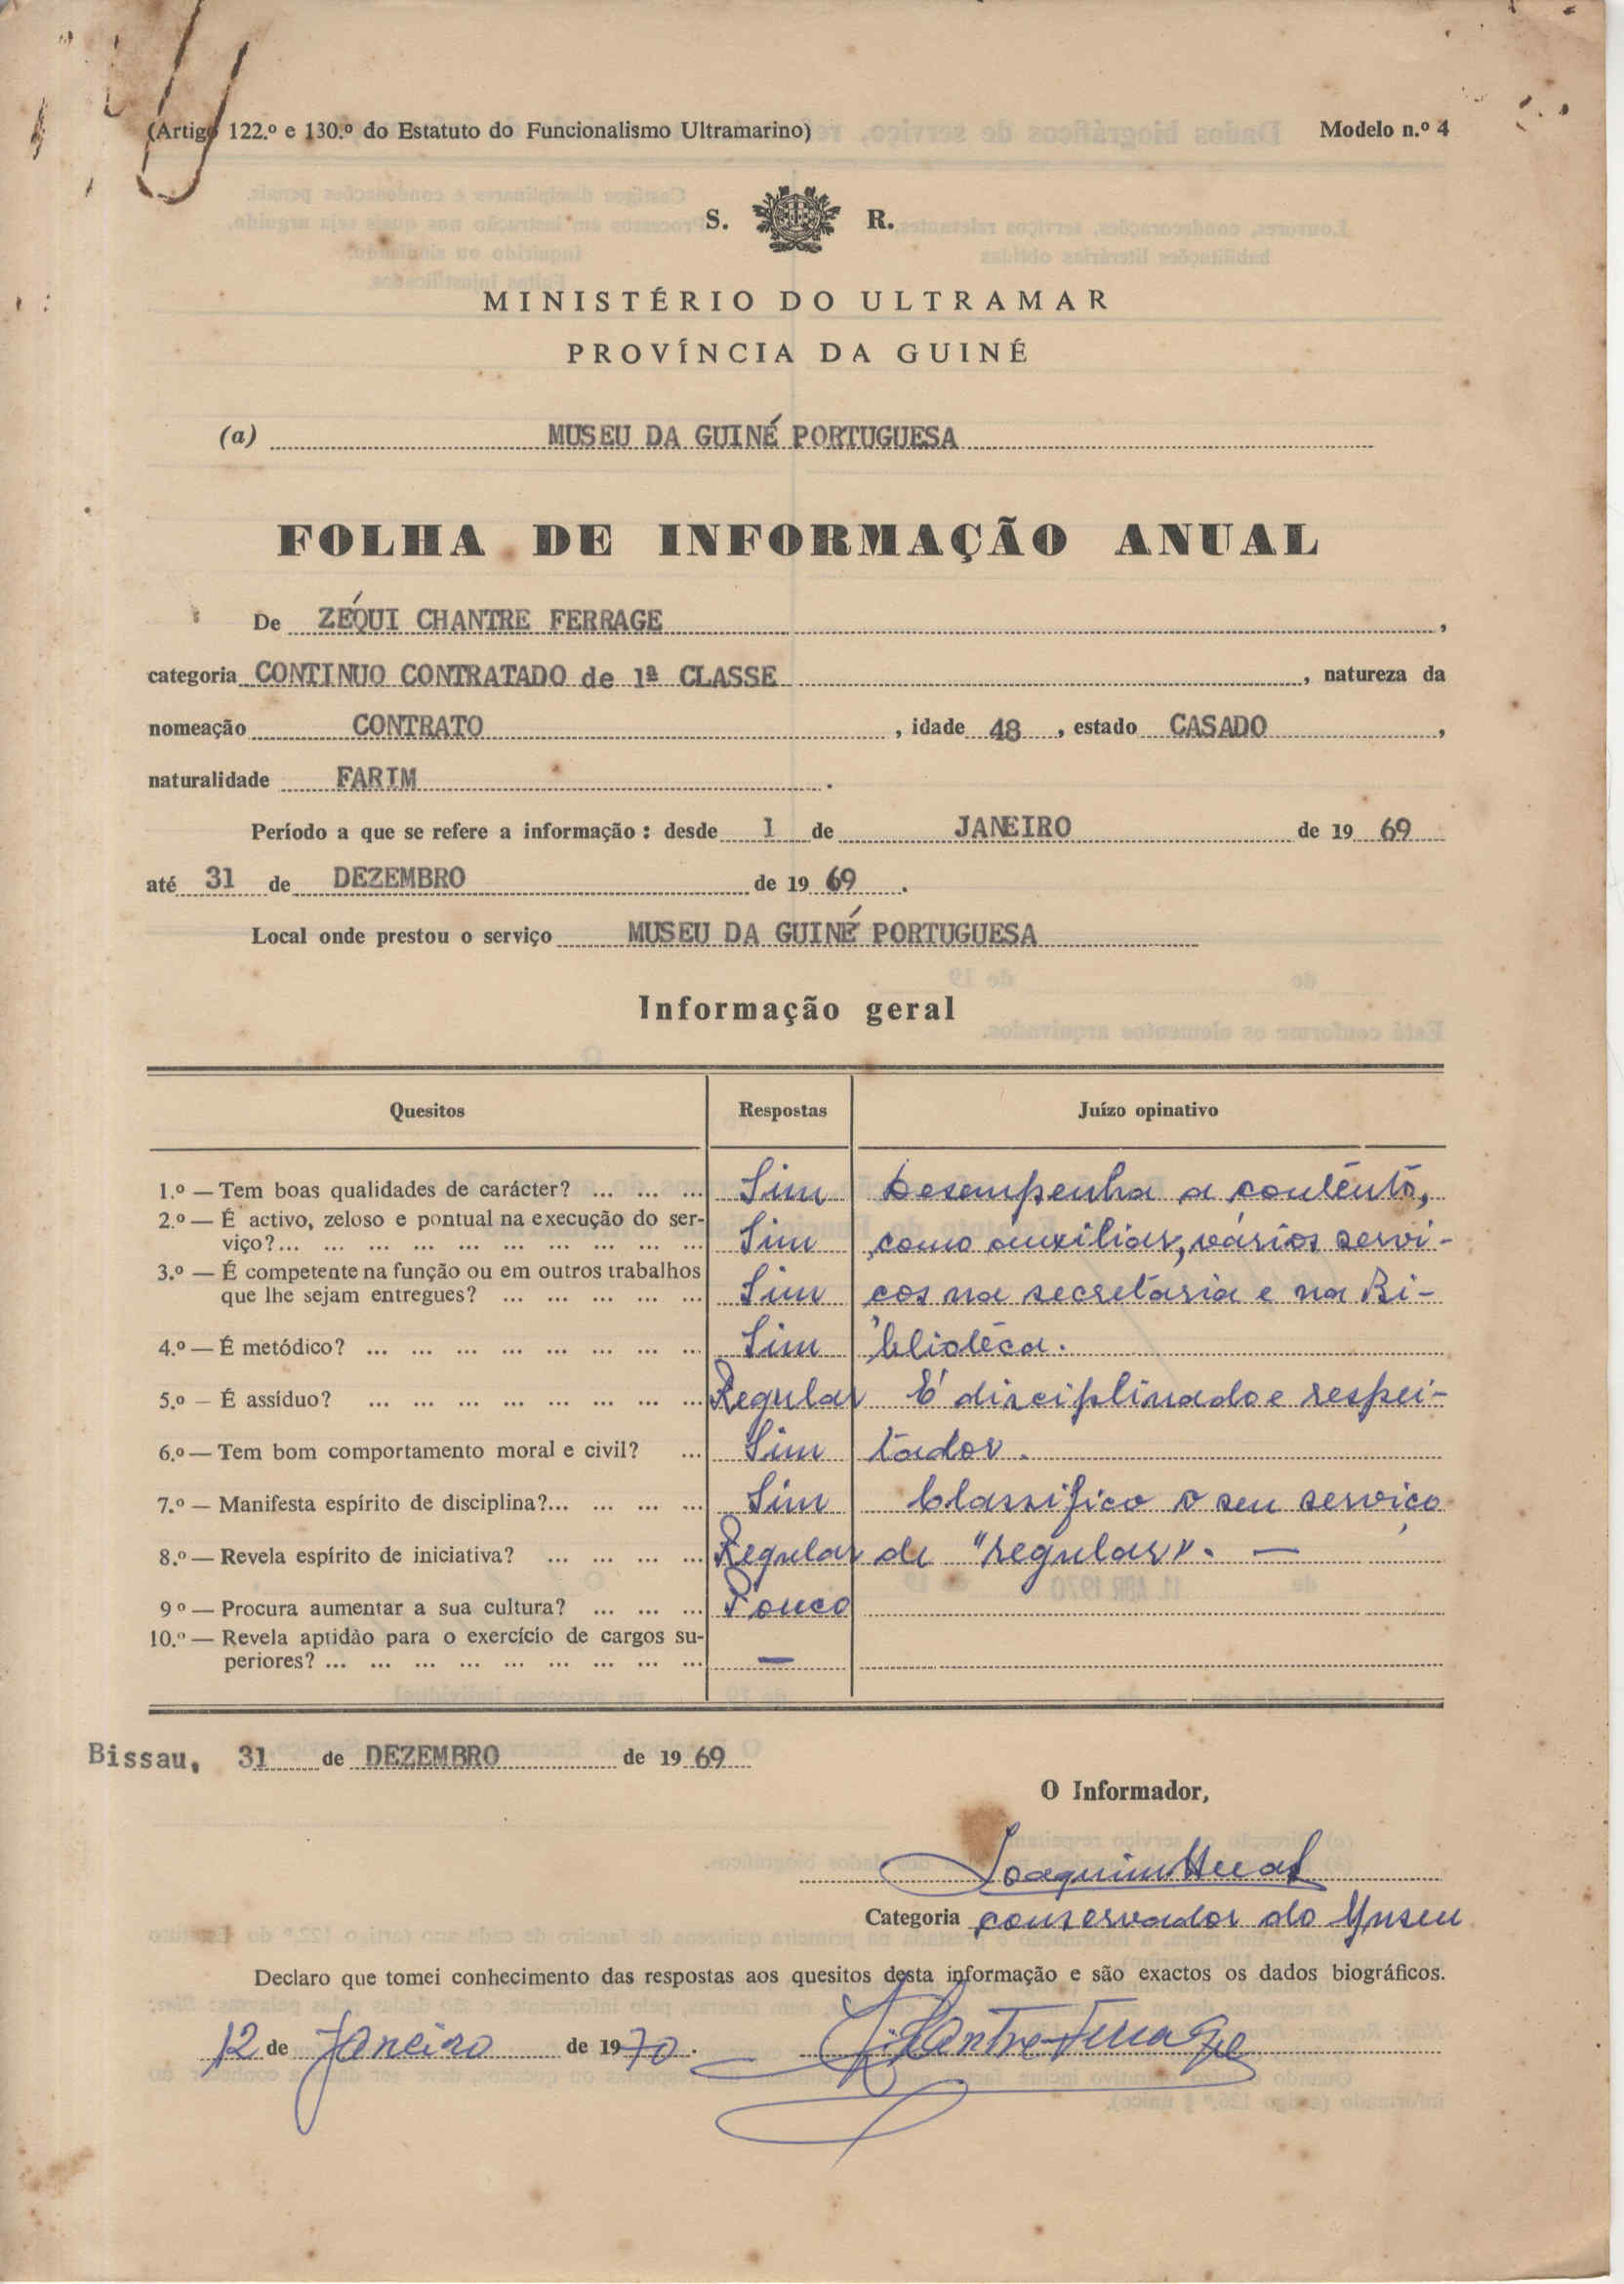 (Artigo 122.º e 130.º do Estatuto do Funcionalismo Ultramarino) Modelo n.º 4
S. R.
MINISTÉRIO DO ULTRAMAR
PROVÍNCIA DA GUINÉ
(a) MUSEU DA GUINÉ PORTUGUESA
FOLHA DE INFORMAÇÃO ANUAL
De ZÉQUI CHANTRE FERRAGE ,
categoria CONTINUO CONTRATADO de 1ª CLASSE , natureza da
nomeação CONTRATO , idade 48 , estado CASADO ,
naturalidade FARIM .
Período a que se refere a informação : desde 1 de JANEIRO de 19 69
até 31 de DEZEMBRO de 19 69 .
Local onde prestou o serviço MUSEU DA GUINÉ PORTUGUESA
Informação geral
Quesitos Respostas Juízo opinativo
1.º — Tem boas qualidades de carácter? ... ... ... Sim Desempenha a contento,
2.º — É activo, zeloso e pontual na execução do ser-
viço?... ... ... ... ... ... ... ... ... ... Sim como auxiliar, vários servi-
3.º — É competente na função ou em outros trabalhos
que lhe sejam entregues? ... ... ... ... ... Sim ços na secretaria e na Bi-
4.º — É metódico? ... ... ... ... ... ... ... ... Sim blioteca.
5.º — É assíduo? ... ... ... ... ... ... ... ... Regular É disciplinado e respei-
6.º — Tem bom comportamento moral e civil? ... Sim tador.
7.º — Manifesta espírito de disciplina?... ... ... ... Sim Classifico o seu serviço
8.º — Revela espírito de iniciativa? ... ... ... ... Regular de "regular". —
9º — Procura aumentar a sua cultura? ... ... ... Pouco
10.º — Revela aptidão para o exercício de cargos su-
periores? ... ... ... ... ... ... ... ... ... —
Bissau, 31 de DEZEMBRO de 19 69
O Informador,
Joaquim
Categoria conservador do Museu
Declaro que tomei conhecimento das respostas aos quesitos desta informação e são exactos os dados biográficos.
12 de Janeiro de 1970. Chantre Ferrage